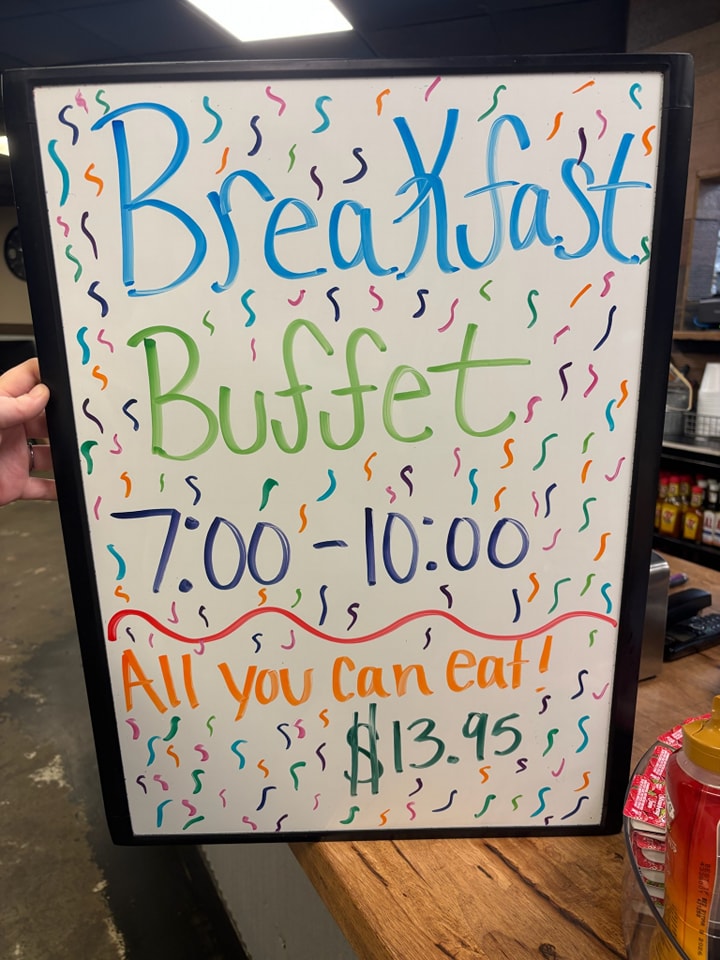 Breakfast
Buffet
7:00 - 10:00
All you can eat!
$13.95